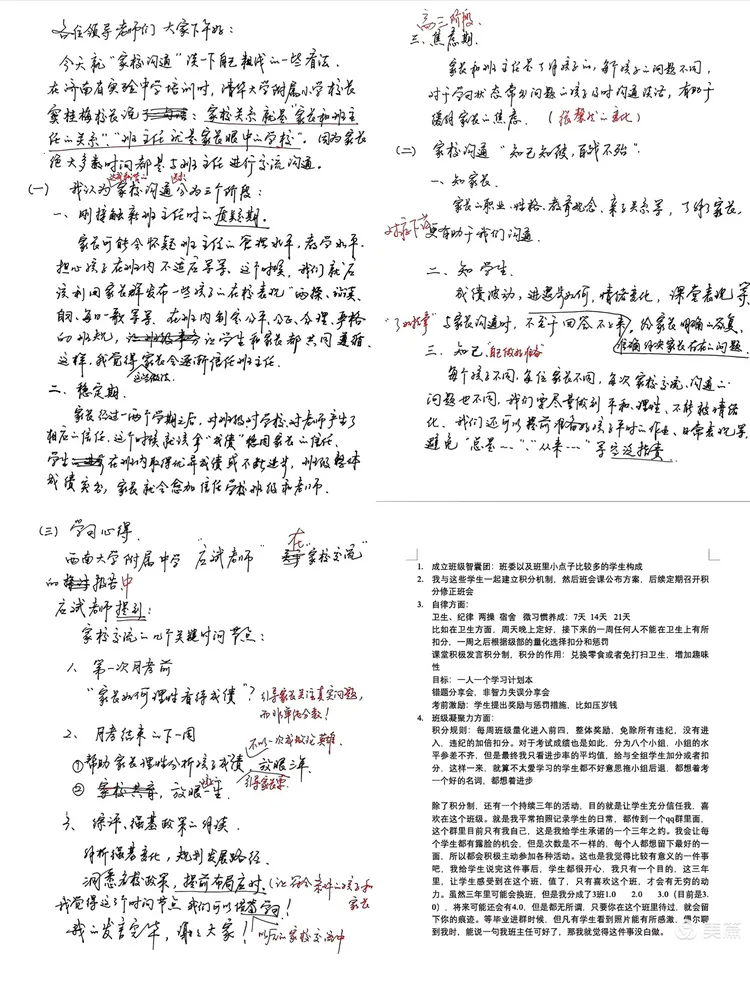 各位领导老师们 大家下午好：
今天就“家校沟通”谈一下自己粗浅的一些看法。
在济南省实验中学培训时，清华大学附属小学校长
窦桂梅校长说：家校关系就是“家长和班主
任的关系”，“班主任就是家长眼中的学校”。因为家长
绝大多数时间都是与班主任进行交流沟通。
(一) 我认为家校沟通分为三个阶段：
一、刚接触新班主任时的质疑期。
家长可能会怀疑班主任的管理水平，教学水平，
担心孩子在班内不适应等等。这个时候，我们就应
该利用家长群发布一些孩子的在校表现“两操、
每日一歌等等。在班内制定公平、公正、合理、严格
的班规，让学生和家长都共同遵循。
这样，我觉得家长会逐渐信任班主任。
这些做法
二、稳定期。
家长经过一两个学期之后，对班级对学校对老师产生了
相应的信任。这个时候就该拿“成绩”稳固家长的信任。
学生在班内取得优异成绩或不断进步，班级整体
成绩突出，家长就会愈加信任学校班级和老师。
高三阶段
三、焦虑期。
家长和班主任甚至了解孩子的，每个孩子的问题不同，
对于学习状态常出问题的孩子及时沟通谈话，有助于
缓解家长的焦虑。
(二) 家校沟通“知己知彼，百战不殆”。
一、知家长。
家长的职业、性格、教育观念、亲子关系等，了解家长，
更有助于我们沟通。
二、知学生。
成绩波动，进退步如何，情绪变化，课堂表现等
与家长沟通时，不至于回答不上来，给家长明确的答复，
准确解决家长存在的问题。
三、知己 自己做好准备
每个孩子不同，每位家长不同，每次家校交流、沟通的
问题也不同，我们要尽量做到平和、理性、不能被情绪
化。我们还可以提前准备好孩子平时的作业、日常表现等，
避免“总是…”、“从来…”等空泛指责
(三) 学习心得
西南大学附属中学“应试老师”在“家校交流”
的报告中
应试老师提到：
家校交流的几个关键时间节点：
1、第一次月考前
“家长如何理性看待成绩”？引导家长关注真实问题，
而非单纯分数！
2、月考结束的下一周
不以一次成败论英雄
①帮助家长理性分析孩子成绩，放眼三年。
②放眼一生。
3、综评、强基政策的解读
解析强基变化，规划发展路径。
洞悉名校政策，提前布局应对。
我觉得这3个时间节点我们可以借鉴学习！
我的发言完毕，谢谢大家！
以后的家校交流中
1. 成立班级智囊团：班委以及班里小点子比较多的学生构成
2. 我与这些学生一起建立积分机制，然后班会课公布方案，后续定期召开积
分修正班会
3. 自律方面：
卫生、纪律 两操 宿舍 微习惯养成：7天 14天 21天
比如在卫生方面，周天晚上定好，接下来的一周任何人不能在卫生上有所
扣分，一周之后根据级部的量化选择扣分和惩罚
课堂积极发言积分制，积分的作用：兑换零食或者免打扫卫生，增加趣味
性
目标：一人一个学习计划本
错题分享会，非智力失误分享会
考前激励：学生提出奖励与惩罚措施，比如压岁钱
4. 班级凝聚力方面：
积分规则：每周班级量化进入前四，整体奖励，免除所有违纪，没有进
入，违纪的加倍扣分。对于考试成绩也是如此，分为八个小组，小组的水
平参差不齐，但是最终我只看进步率的平均值，给与全组学生加分或者扣
分，这样一来，就算不太爱学习的学生都不好意思拖小组后退，都想着考
一个好的名词，都想着进步
除了积分制，还有一个持续三年的活动，目的就是让学生充分信任我，喜
欢在这个班级。就是我平常拍照记录学生的日常，都传到一个qq群里面，
这个群里目前只有我自己，这是我给学生承诺的一个三年之约。我会让每
个学生都有露脸的机会，但是次数是不一样的，每个人都想留下最好的一
面，所以都会积极主动参加各种活动。这也是我觉得比较有意义的一件事
吧，我给学生说完这件事后，学生都很开心，我只有一个目的，这三年
里，让学生感受到在这个班，值了，只有喜欢这个班，才会有无穷的动
力。虽然三年里可能会换班，但是我分成了3班1.0 2.0 3.0（目前是3.
0），将来可能还会有4.0，但是都无所谓，只要在这个班里待过，就会留
下你的痕迹。等毕业进群时候，但凡有学生看到照片能有所感激，偶尔聊
到我时，能说一句我班主任可好了，那我就觉得这件事没白做。
美篇